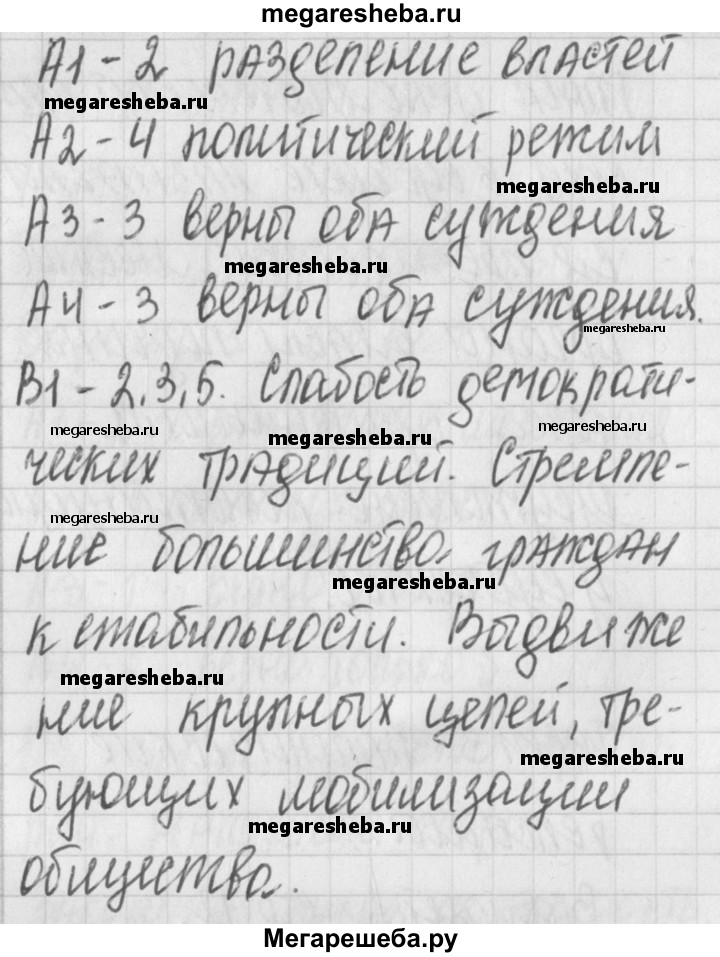 megaresheba.ru
А1 - 2 разделение властей
megaresheba.ru
А2 - 4 политический режим
megaresheba.ru
А3 - 3 верны оба суждения
megaresheba.ru
А4 - 3 верны оба суждения.
megaresheba.ru
В1 - 2,3,5. Слабость демократи-
megaresheba.ru megaresheba.ru megaresheba.ru
ческих традиций. Стремле-
megaresheba.ru
ние большинства граждан
megaresheba.ru
к стабильности. Выдвиже
megaresheba.ru
ние крупных целей, тре-
megaresheba.ru
бующих мобилизации
megaresheba.ru
общества.
Мегарешеба.ру